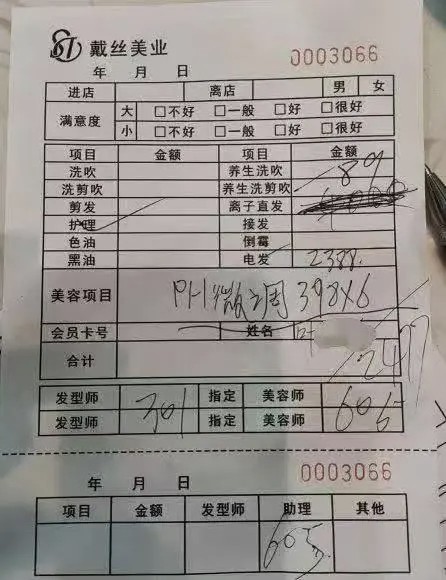 戴丝美业
0003066
年 月 日
进店 离店 男 女
满意度 大 □不好 □一般 □好 □很好
小 □不好 □一般 □好 □很好
项目 金额 项目 金额
洗吹 养生洗吹
洗剪吹 养生洗剪吹 89
剪发 离子直发
护理 接发
色油 倒霉
黑油 电发 2388.
美容项目 PH微调 398×6
会员卡号 姓名
合计 2477
发型师 301 指定 美容师 605
发型师 指定 美容师
0003066
年 月 日
项目 金额 发型师 助理 其他
605